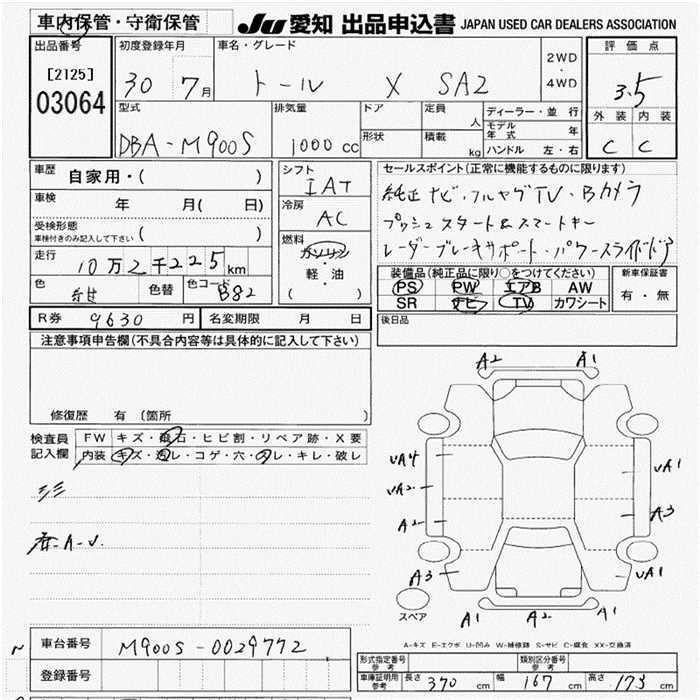 車内保管・守衛保管 JU 愛知 出品申込書 JAPAN USED CAR DEALERS ASSOCIATION
出品番号 初度登録年月 車名・グレード 2WD・4WD 評価点
[2125] 03064 30 7月 トール X SA2 3.5
型式 排気量 ドア 定員 人 ディーラー・並行 外装 内装
DBA-M900S 1000cc 形状 積載 kg モデル年式 年 C C
ハンドル 左・右
車歴 自家用・( ) シフト IAT セールスポイント(正常に機能するものに限ります)
車検 年 月( 日) 冷房 AC 純正ナビ・フルセグTV・Bカメラ
受検形態 車検付きのみ記入して下さい ( ) プッシュスタート&スマートキー
走行 10万2千225km 燃料 ガソリン・軽・油 ( ) レーダーブレーキサポート・パワースライドドア
色 紺 色替 色コード B82 装備品(純正品に限り○をつけてください) 新車保証書
PS PW エアB AW 有・無
SR ナビ TV カワシート
R券 9630円 名変期限 月 日 後日品
注意事項申告欄(不具合内容等は具体的に記入して下さい)
修復歴 有(箇所 )
検査員記入欄 FW キズ・飛石・ヒビ割・リペア跡・X要
内装 キズ・汚レ・コゲ・穴・スレ・キレ・破レ
A2 A1
UA4 UA1
UA2
A2 A3
A3 UA1
スペア A1 A2 A1
A-キズ E-エクボ U-凹み W-補修跡 S-サビ C-腐食 XX-交換済
車台番号 M900S-0029772
登録番号
形式指定番号 参考 類別区分番号 参考
車庫証明用参考 長さ 370cm 幅 167cm 高さ 173cm